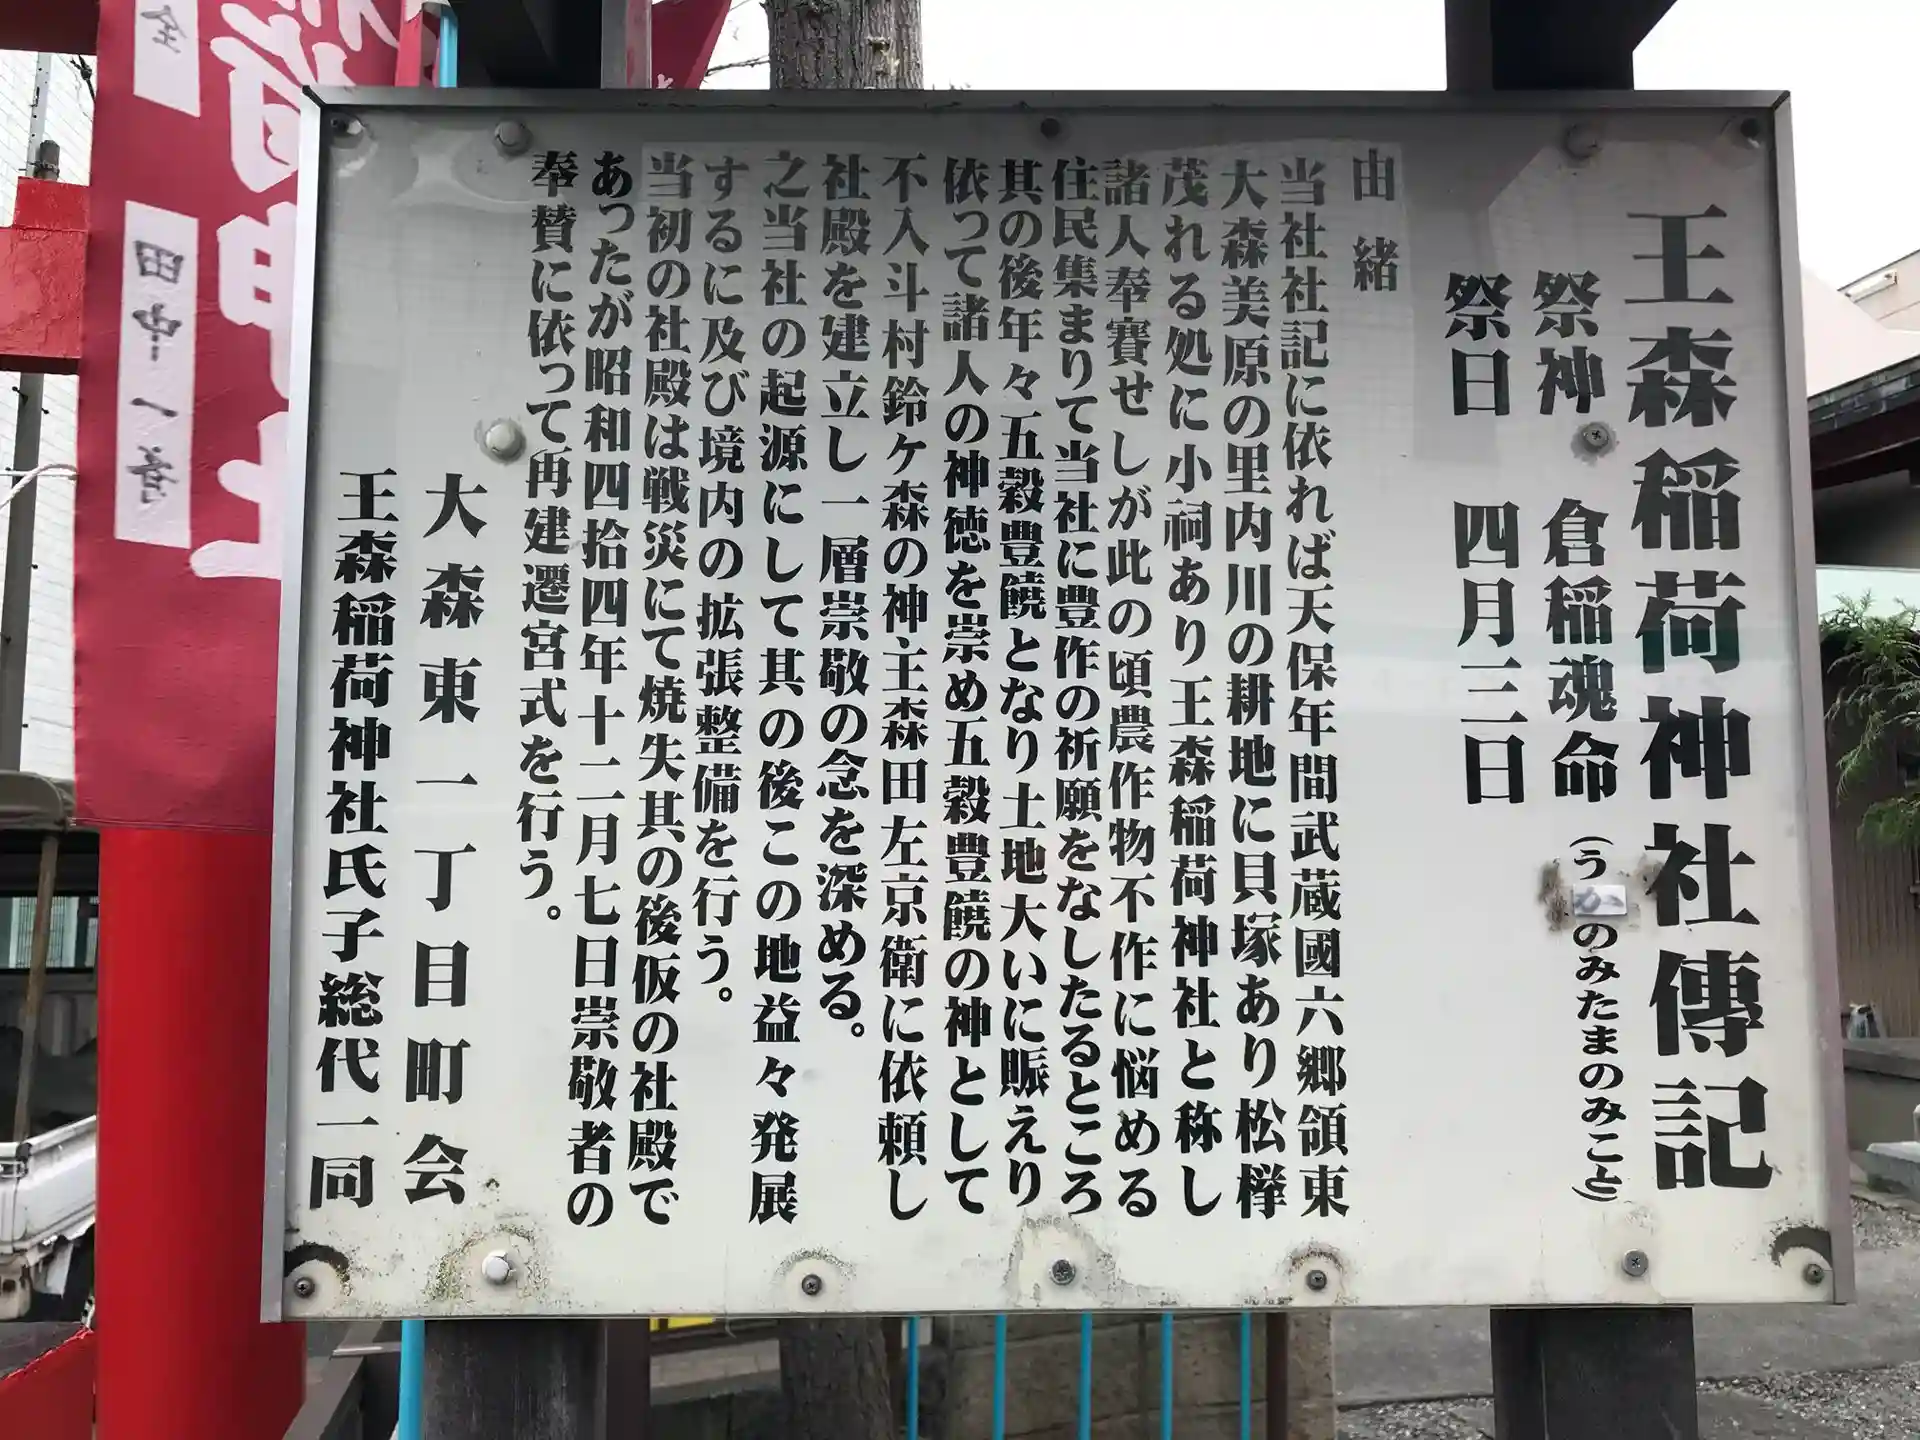 王森稲荷神社傳記
祭神 倉稲魂命(うかのみたまのみこと)
祭日 四月三日
由緒
当社社記に依れば天保年間武蔵國六郷領東
大森美原の里内川の耕地に貝塚あり松欅
茂れる処に小祠あり王森稲荷神社と称し
諸人奉賽せしが此の頃農作物不作に悩める
住民集まりて当社に豊作の祈願をなしたるところ
其の後年々五穀豊饒となり土地大いに賑えり
依って諸人の神徳を崇め五穀豊饒の神として
不入斗村鈴ケ森の神主森田左京衛に依頼し
社殿を建立し一層崇敬の念を深める。
之当社の起源にして其の後この地益々発展
するに及び境内の拡張整備を行う。
当初の社殿は戦災にて焼失其の後仮の社殿で
あったが昭和四拾四年十二月七日崇敬者の
奉賛に依って再建遷宮式を行う。
大森東一丁目町会
王森稲荷神社氏子総代一同
田中一